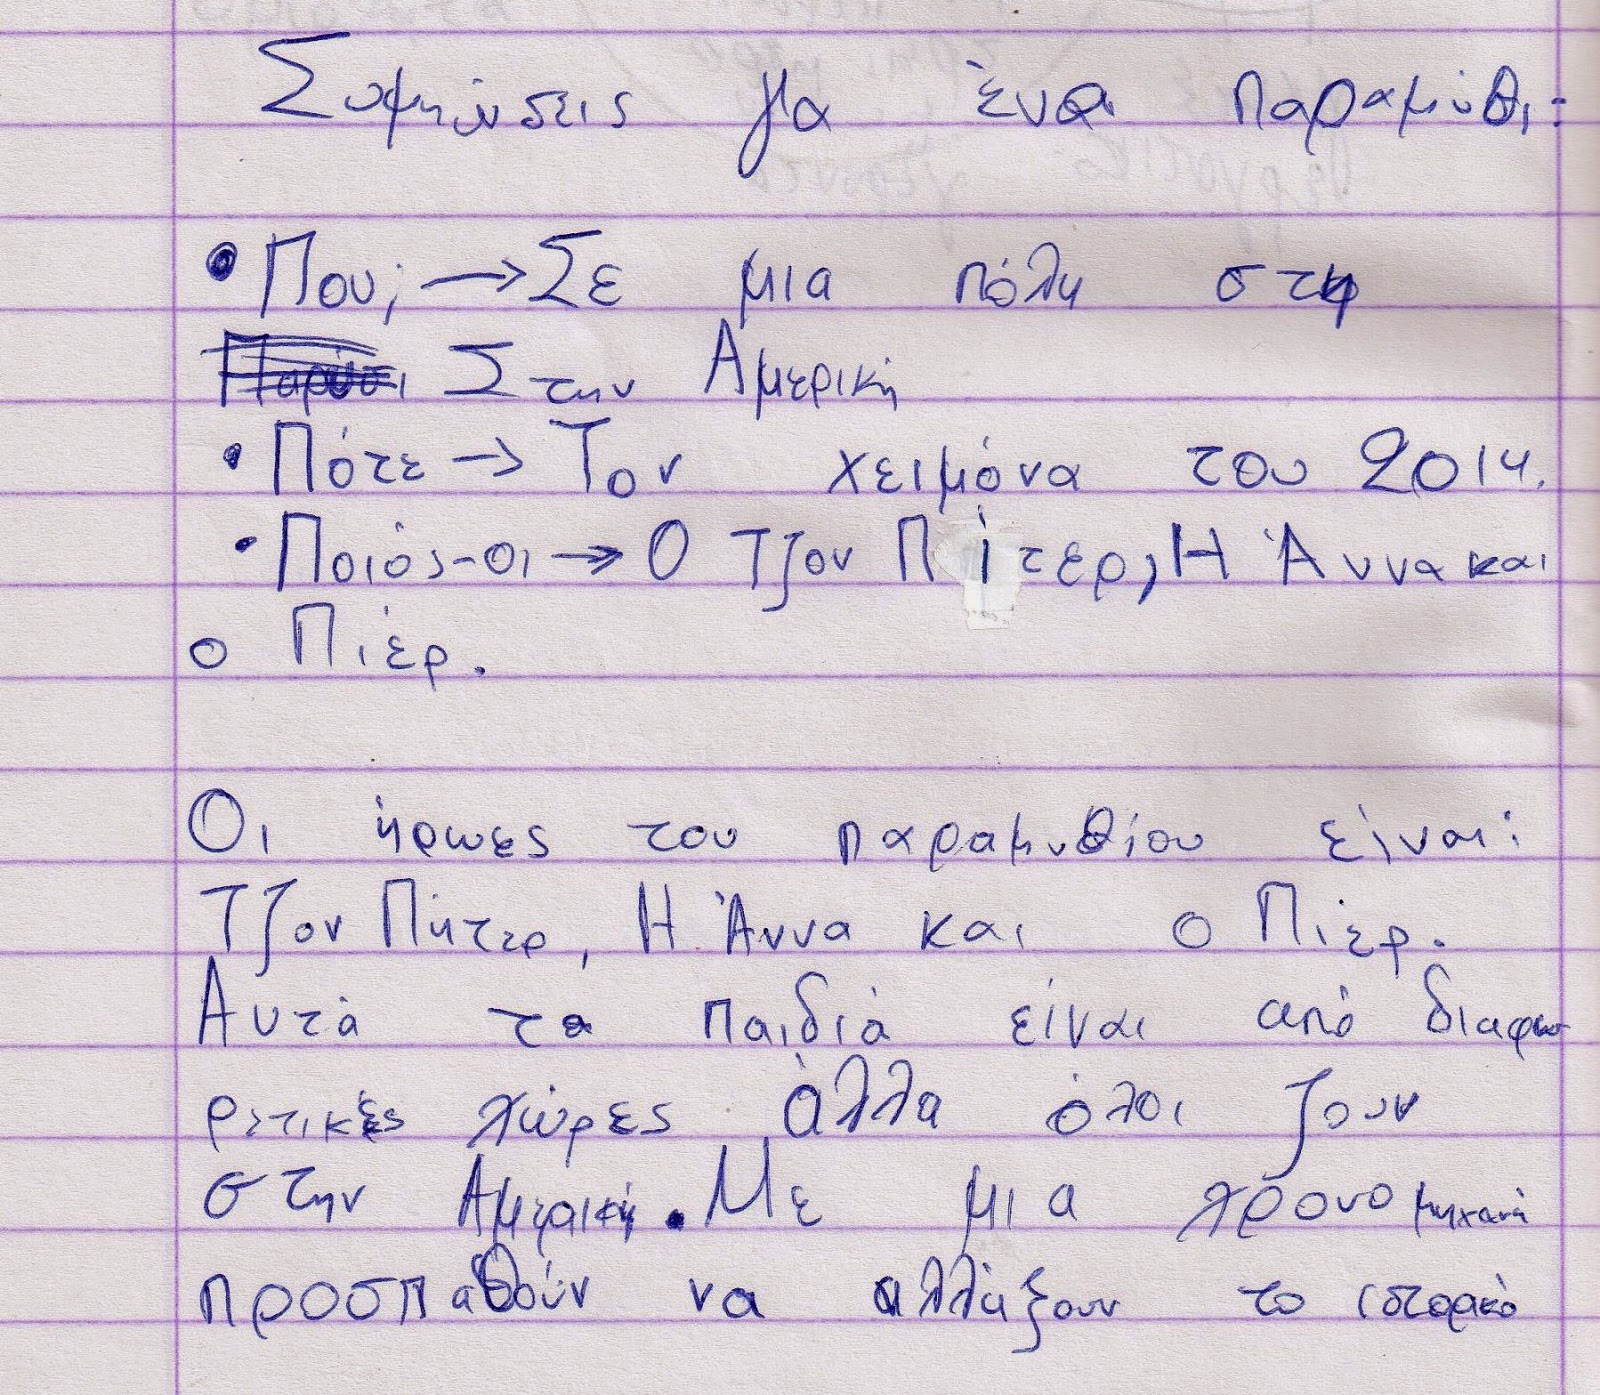 Σημειώσεις για ένα παραμύθι:
• Που; → Σε μια πόλη στη
Στην Αμερική
• Πότε → Τον χειμόνα του 2014.
• Ποιός-οι → Ο Τζον Πίτερ, Η Άννα και
ο Πιέρ.
Οι ήρωες του παραμυθίου είναι:
Τζον Πήτερ, Η Άννα και ο Πιέρ.
Αυτά τα παιδιά είναι από διαφο
ρετικές χώρες άλλα όλοι ζουν
στην Αμερική. Με μια χρονομηχανή
προσπαθούν να αλλάξουν το ιστορικό